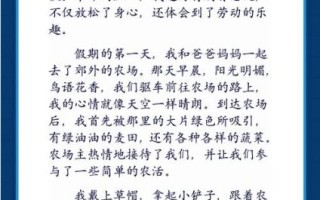 不仅放松了身心，还体会到了劳动的乐
趣。
假期的第一天，我和爸爸妈妈一起
去了郊外的农场。那天早晨，阳光明媚，
鸟语花香，我们驱车前往农场的路上，
我的心情就像天空一样晴朗。到达农场
后，我首先被那里的大片绿色所吸引，
有绿油油的麦田，还有各种各样的蔬菜。
农场主热情地接待了我们，并让我们参
与了一些简单的农活。
我戴上草帽，拿起小铲子，跟着农